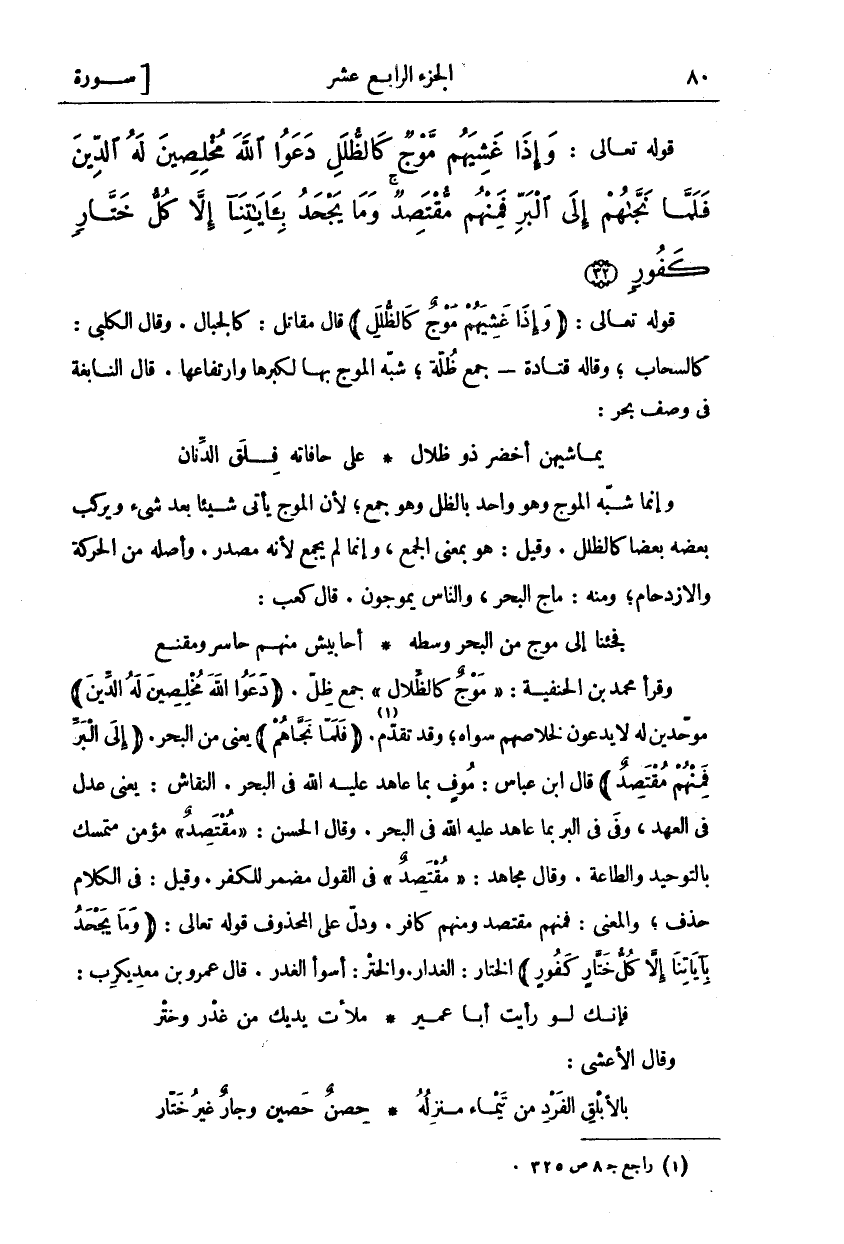 ٨٠ الجزء الرابع عشر [ سورة
قوله تعالى : وَإِذَا غَشِيَهُم مَّوْجٌ كَالظُّلَلِ دَعَوُا ٱللَّهَ مُخْلِصِينَ لَهُ ٱلدِّينَ
فَلَمَّا نَجَّىٰهُمْ إِلَى ٱلْبَرِّ فَمِنْهُم مُّقْتَصِدٌ ۚ وَمَا يَجْحَدُ بِـَٔايَـٰتِنَآ إِلَّا كُلُّ خَتَّارٍ
كَفُورٍ ﴿٣٢﴾
قوله تعالى : ﴿ وَإِذَا غَشِيَهُمْ مَوْجٌ كَالظُّلَلِ ﴾ قال مقاتل : كالجبال . وقال الكلبي :
كالسحاب ؛ وقاله قتادة — جمع ظُلّة ؛ شبّه الموج بها لكبرها وارتفاعها . قال النابغة
فى وصف بحر :
يماشيهن أخضر ذو ظلال * على حافاته فِلَق الدِّنان
و إنما شبّه الموج وهو واحد بالظل وهو جمع ؛ لأن الموج يأتى شيئا بعد شىء ويركب
بعضه بعضا كالظلل . وقيل : هو بمعنى الجمع ، و إنما لم يجمع لأنه مصدر . وأصله من الحركة
والازدحام ؛ ومنه : ماج البحر ، والناس يموجون . قال كعب :
فجئنا إلى موج من البحر وسطه * أحابيش منهم حاسر ومقنع
وقرأ محمد بن الحنفية : « مَوْجٌ كالظِّلال » جمع ظِلّ . ﴿ دَعَوُا اللهَ مُخْلِصِينَ لَهُ الدِّينَ ﴾
موحّدين له لا يدعون لخلاصهم سواه ؛ وقد تقدّم (١) . ﴿ فَلَمَّا نَجَّاهُمْ ﴾ يعنى من البحر . ﴿ إِلَى الْبَرِّ
فَمِنْهُمْ مُقْتَصِدٌ ﴾ قال ابن عباس : مُوفٍ بما عاهد عليه الله فى البحر . النقاش : يعنى عدل
فى العهد ، وفّى فى البر بما عاهد عليه الله فى البحر . وقال الحسن : «مُقْتَصِدٌ» مؤمن متمسك
بالتوحيد والطاعة . وقال مجاهد : « مُقْتَصِدٌ » فى القول مضمر للكفر . وقيل : فى الكلام
حذف ؛ والمعنى : فمنهم مقتصد ومنهم كافر . ودلّ على المحذوف قوله تعالى : ﴿ وَمَا يَجْحَدُ
بِآيَاتِنَا إِلَّا كُلُّ خَتَّارٍ كَفُورٍ ﴾ الختار : الغدار . والختْر : أسوأ الغدر . قال عمرو بن معديكرب :
فإنك لو رأيت أبا عمير * ملأت يديك من غدْر وختْر
وقال الأعشى :
بالأبْلَقِ الفَرْدِ من تَيْماء منزلُهُ * حِصنٌ حَصين وجارٌ غيرُ خَتّار
(١) راجع جـ ٨ ص ٣٢٥ .